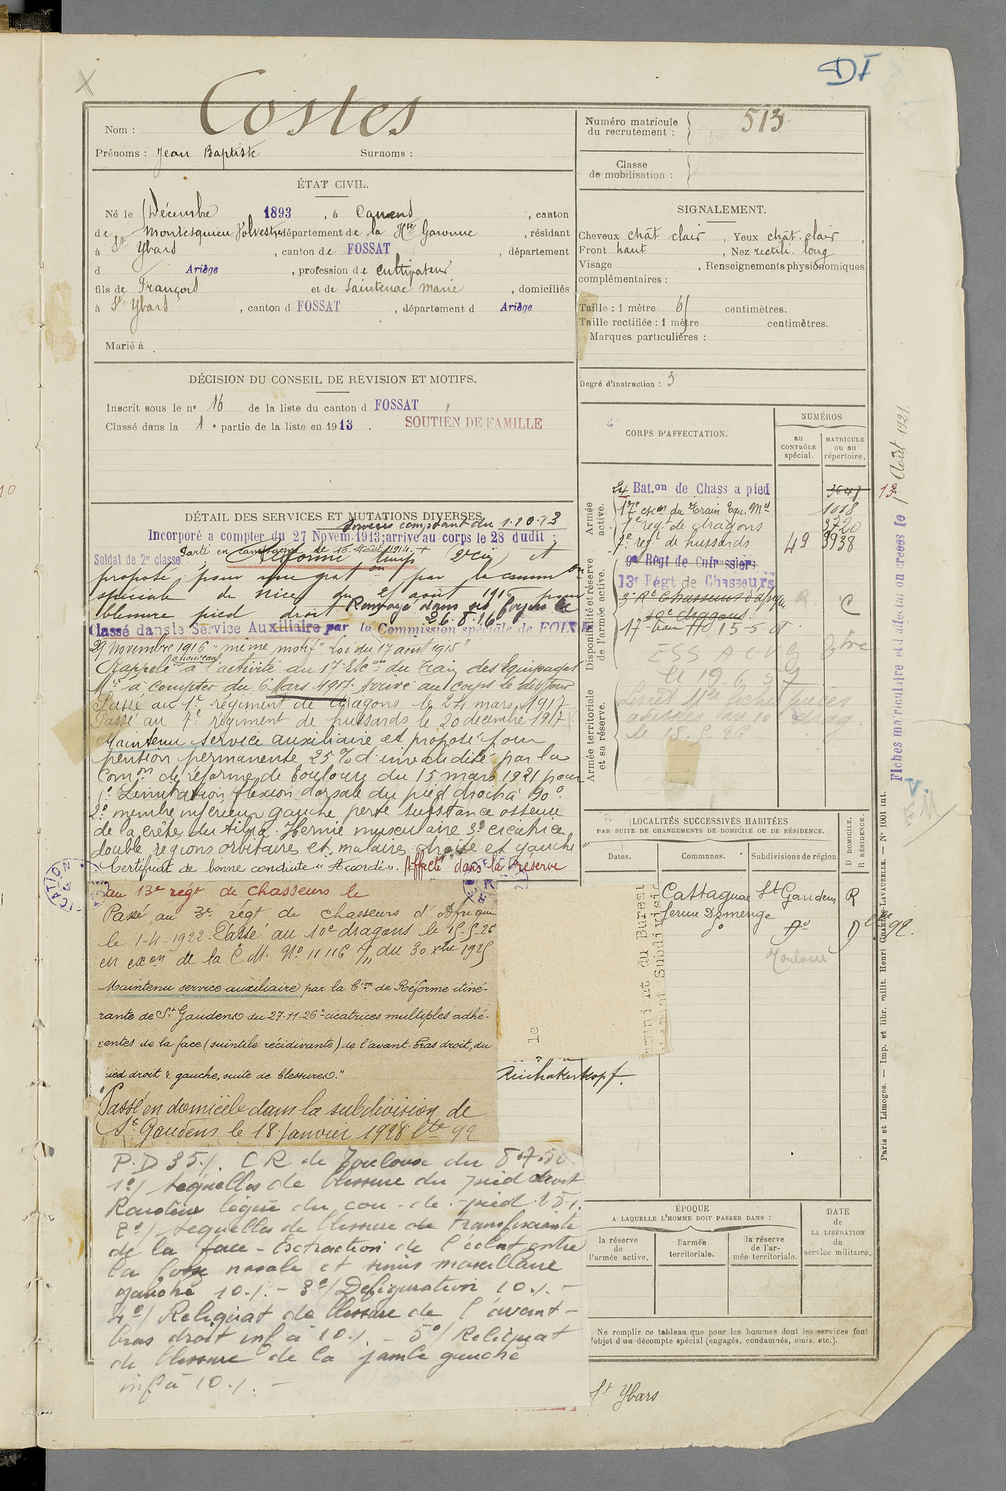 DI
Costes
Nom :
Prénoms : Jean Baptiste Surnoms :
Numéro matricule du recrutement : 513
Classe de mobilisation :
ÉTAT CIVIL.
Né le Décembre 1893, à Camens, canton
de Montesquieu Volvestre, département de la Hte Garonne, résidant
à St Ybars, canton de FOSSAT, département
d Ariège, profession de cultivateur
fils de François et de Saintenac Marie, domiciliés
à St Ybars, canton d FOSSAT, département d Ariège
Marié à
SIGNALEMENT.
Cheveux chât clair, Yeux chât. clair,
Front haut, Nez rectil. long
Visage , Renseignements physionomiques
complémentaires :
Taille : 1 mètre 61 centimètres.
Taille rectifiée : 1 mètre centimètres.
Marques particulières :
Degré d'instruction : 3
DÉCISION DU CONSEIL DE RÉVISION ET MOTIFS.
Inscrit sous le no 16 de la liste du canton d FOSSAT
Classé dans la 1e partie de la liste en 1913.
SOUTIEN DE FAMILLE
DÉTAIL DES SERVICES ET MUTATIONS DIVERSES.
Services comptant du 1-10-13
Incorporé a compter du 27 Novem. 1913; arrive au corps le 28 dudit;
Soldat de 2e classe
proposé pour une
spéciale de Nice du
blessure pied droit. Renvoyé dans ses foyers le
26.8.16
Classé dans le Service Auxiliaire par la Commission spéciale de FOIX
29 Novembre 1916 "même motif" Loi du 17 août 1915
Rappelé à l'activité au 17e Eson du Train des Equipages
Mres à compter du 6 Mars 1917. Arrivé au corps le dit jour
Passé au 1er régiment de dragons le 24 mars 1917
Passé au 7e régiment de hussards le 20 décembre 1917
Maintenu service auxiliaire et proposé pour
pension permanente 25 % d'invalidité par la
Comon de réforme de Toulouse du 15 mars 1921 pour
1o Limitation flexion dorsale du pied droit à 90o.
2o membre inférieur gauche, perte substance osseuse
de la crête du tibia. Hernie musculaire 3o cicatrice
double régions orbitaires et malaires droite et gauche
Certificat de bonne conduite "Accordé". Affecté dans la réserve
au 13e régt de chasseurs le
Passé au 3e régt de chasseurs d'Afrique
le 1-4-1922. Passé au 10e dragons le 15.5.26
en exon de la C.M. No 11116 du 30 Xbre 1925
Maintenu service auxiliaire par la Con de Réforme itiné-
rante de St Gaudens du 27-11-26 "cicatrices multiples adhé-
rentes de la face (suintile récidivante) de l'avant-bras droit, du
pied droit & gauche, suite de blessures."
Passé en domicile dans la subdivision de
St Gaudens le 18 janvier 1928 Lte 92
P.D 35%. C R de Toulouse du
1o/ Séquelles de blessure du pied droit
Raideur légère du cou-de-pied
2o/ Séquelles de blessure transfixiante
de la face - Extraction de l'éclat entre
la fosse nasale et sinus maxillaire
gauche 10%. - 3o/ Défiguration 10%. -
4o/ Reliquat de blessure de l'avant-
bras droit inf à 10%. - 5o/ Reliquat
de blessure de la jambe gauche
inf à 10%. -
Reichakerkopf.
CORPS D'AFFECTATION.
NUMÉROS
au CONTRÔLE spécial.
MATRICULE ou au répertoire.
Armée active.
Disponibilité et réserve de l'armée active.
Armée territoriale et sa réserve.
24 Bat.on de Chass a pied
17e escon du Train Equ. Mres 1018
1er regt de dragons 3720
7e regt de hussards 49 3938
9e Régt de Cuirassiers
13e Régt de Chasseurs
3e Rt Chasseurs d'Afrique
10e dragons
LOCALITÉS SUCCESSIVES HABITÉES
PAR SUITE DE CHANGEMENTS DE DOMICILE OU DE RÉSIDENCE.
Dates.
Communes.
Subdivisions de région
D DOMICILE.
R RÉSIDENCE.
Cattagnac St Gaudens R
ferme Domenge
do do D Lte 92.
Toulouse
ÉPOQUE
A LAQUELLE L'HOMME DOIT PASSER DANS :
la réserve de l'armée active.
l'armée territoriale.
la réserve de l'armée territoriale.
DATE de LA LIBÉRATION du service militaire.
Ne remplir ce tableau que pour les hommes dont les services font
l'objet d'un décompte spécial (engagés, condamnés, omis, etc.).
St Ybars
Fiches matriculaire et d'affectation créées le 1 Août 1921
Paris et Limoges. — Imp. et libr. milit. Henri CHARLES-LAVAUZELLE. — N° 1001 int.